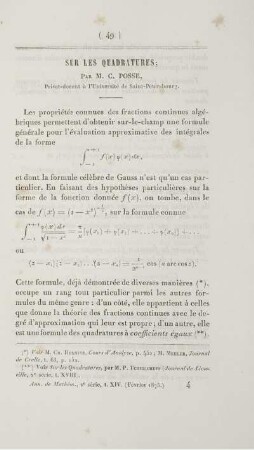 ( 49 )
SUR LES QUADRATURES;
PAR M. C. POSSE,
Privat-docent à l'Université de Saint-Pétersbourg.
Les propriétés connues des fractions continues algé-
briques permettent d'obtenir sur-le-champ une formule
générale pour l'évaluation approximative des intégrales
de la forme
∫₋₁⁺¹ f(x) φ(x) dx,
et dont la formule célèbre de Gauss n'est qu'un cas par-
ticulier. En faisant des hypothèses particulières sur la
forme de la fonction donnée f(x), on tombe, dans le
cas de f(x) = (1 − x²)^(−1/2), sur la formule connue
∫₋₁⁺¹ φ(x) dx / √(1 − x²) = π/n [φ(x₁) + φ(x₂) + . . . + φ(xₙ)] . . .
ou
(z − x₁)(z − x₂) . . . (z − xₙ) = 1/2ⁿ⁻¹ cos (n arc cos z).
Cette formule, déjà démontrée de diverses manières (*),
occupe un rang tout particulier parmi les autres for-
mules du même genre : d'un côté, elle appartient à celles
que donne la théorie des fractions continues avec le de-
gré d'approximation qui leur est propre; d'un autre, elle
est une formule des quadratures à coefficients égaux (**).
(*) Voir M. Ch. HERMITE, Cours d'Analyse, p. 452; M. MEHLER, Journal
de Crelle, t. 63, p. 152.
(**) Voir Sur les Quadratures, par M. P. TCHEBICHEF (Journal de Liou-
ville, 2e série, t. XVIII.
Ann. de Mathém., 2e série, t. XIV. (Février 1875.) 4